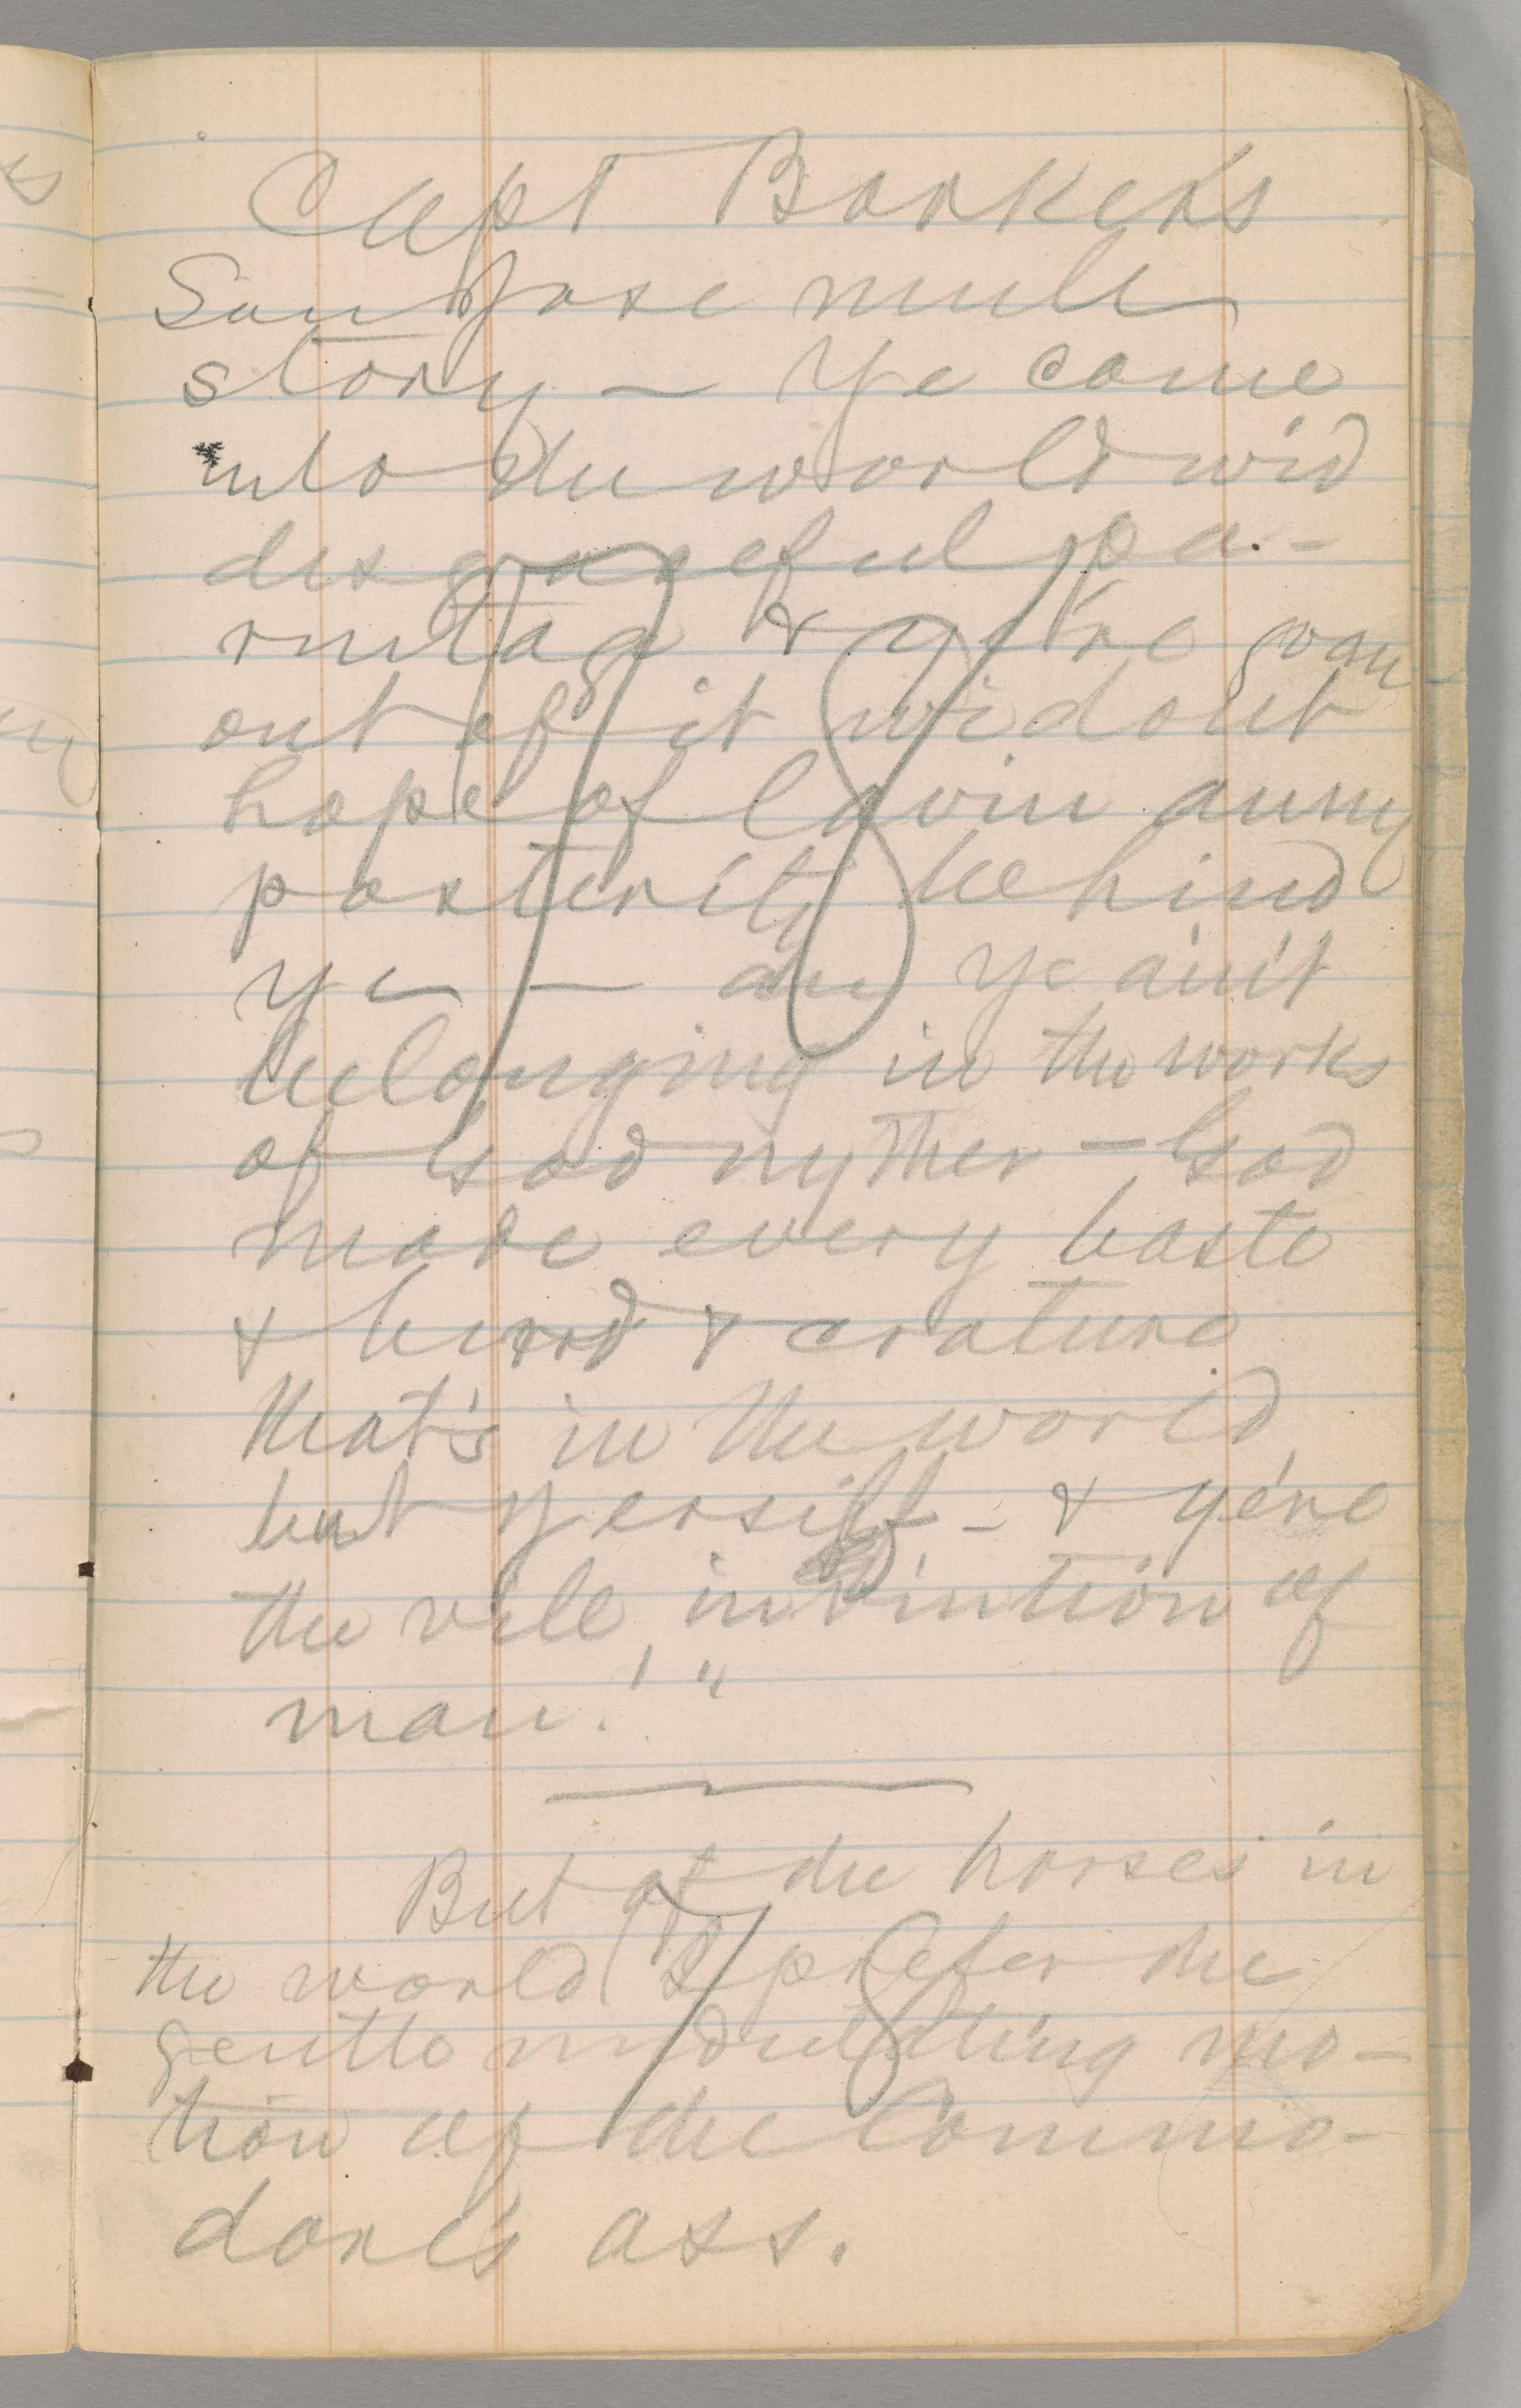 Capt Booker's
San Jose mule
story — Ye come
into the world wid
disgraceful pa-
rintag & ye're goan
out of it widout
hope of lavin anny
posterity behind
ye — an ye ain't
belonging in the works
of God nyther — God
made every baste
& burrd & crature
that's in the world
but yersilf — & ye're
the vile invintion of
man!"
But of the horses in
the world I prefer the
gentle undulating mo-
tion of the Commo-
dore's ass.